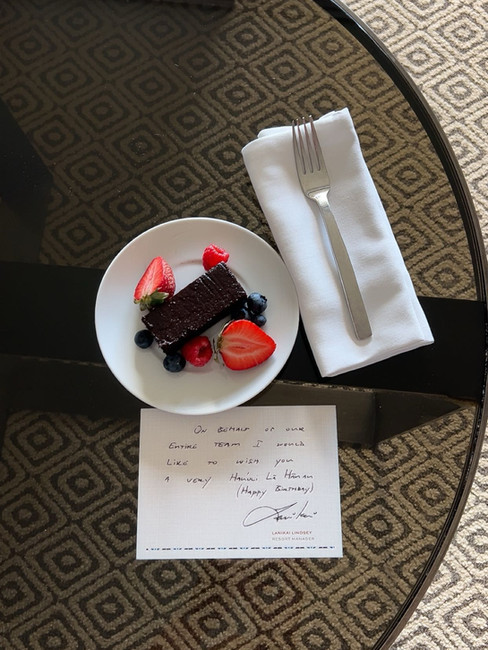 On behalf of our
entire team I would
like to wish you
a very Hauʻoli Lā Hānau
(Happy Birthday)
LANIKAI LINDSEY
RESORT MANAGER